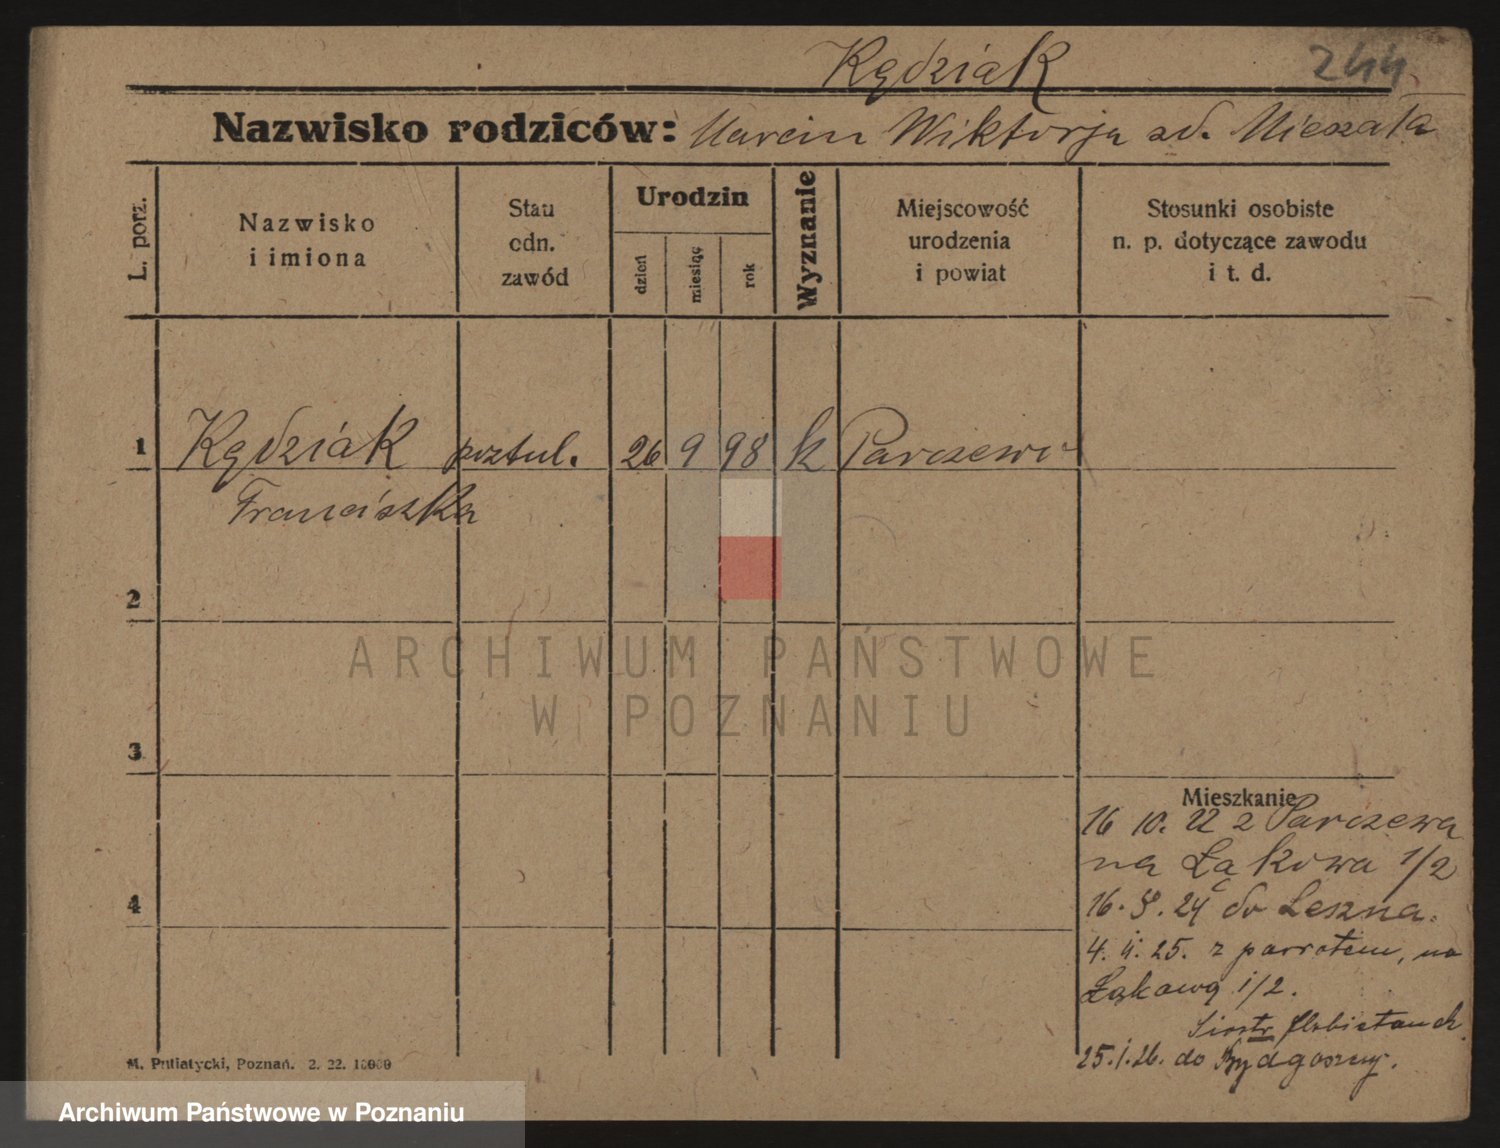 Kędziak 244
Nazwisko rodziców: Marcin Wiktorja zd. Mieszała
L. porz.
Nazwisko
i imiona
Stan
cdn.
zawód
Urodzin
dzień
miesiąc
rok
Wyznanie
Miejscowość
urodzenia
i powiat
Stosunki osobiste
n. p. dotyczące zawodu
i t. d.
1 Kędziak postul. 26 9 98 k Parczewo
Franciszka
2
3
4
Mieszkanie
16 10. 22 z Parczewa
na Łąkowa 1/2
16. 8. 24 do Leszna.
4. 25. z powrotem, na
Łąkową 1/2.
Siostr Elżbietanek
25.1.26. do Bydgoszczy.
M. Putiatycki, Poznań. 2. 22. 10000
ARCHIWUM PAŃSTWOWE
W POZNANIU
Archiwum Państwowe w Poznaniu